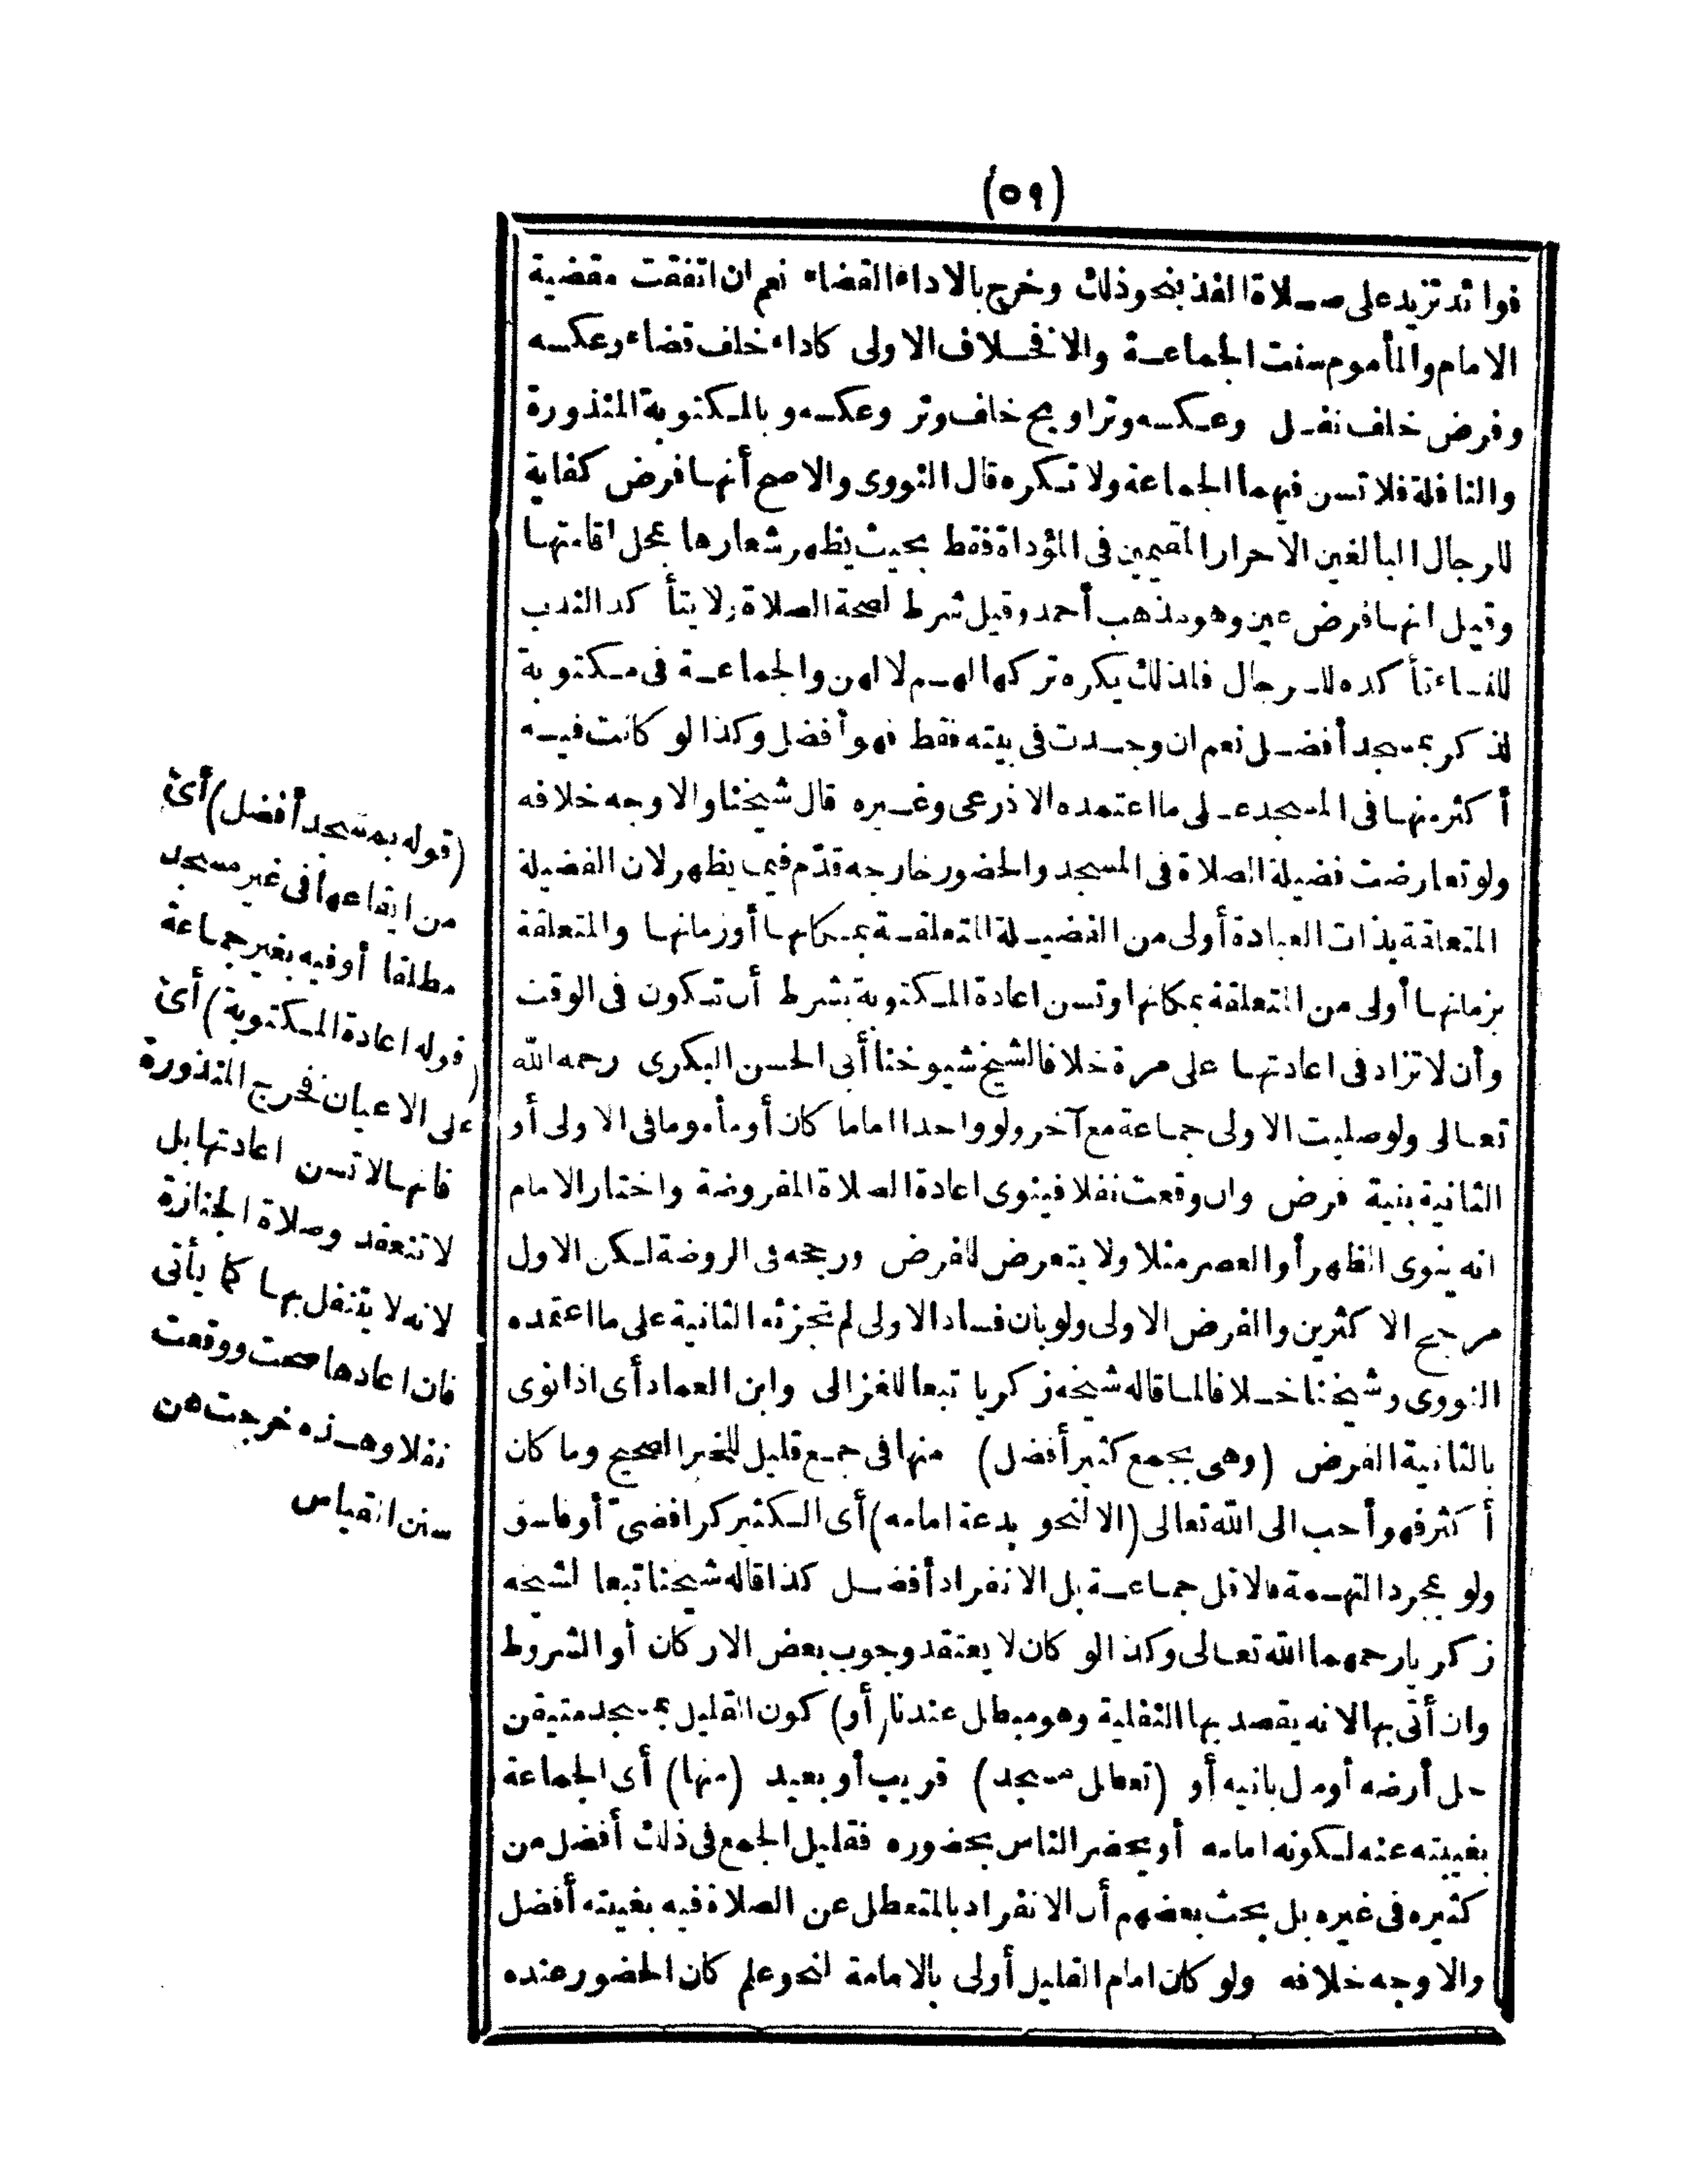 (٥٩)
فوائد تزيد على صلاة الفذ بنحو ذلك وخرج بالاداء القضاء نعم ان اتفقت مقضية
الامام والمأموم سنت الجماعة والا فخلاف الاولى كاداء خلف قضاء وعكسه
وفرض خلف نفل وعكسه وتراويح خلف وتر وعكسه وبالمكتوبة المنذورة
والنافلة فلا تسن فيهما الجماعة ولا تكره قال النووى والاصح أنها فرض كفاية
للرجال البالغين الاحرار المقيمين فى المؤداة فقط بحيث يظهر شعارها بمحل اقامتها
وقيل انها فرض عين وهو مذهب أحمد وقيل شرط لصحة الصلاة ولا يتأكد الندب
للنساء تأكده للرجال فلذلك يكره تركها لهم لا لهن والجماعة فى مكتوبة
لذكر بمسجد أفضل نعم ان وجدت فى بيته فقط فهو أفضل وكذا لو كانت فيه
أكثر منها فى المسجد على ما اعتمده الاذرعى وغيره قال شيخنا والاوجه خلافه
ولو تعارضت فضيلة الصلاة فى المسجد والحضور خارجه قدّم فيما يظهر لان الفضيلة
المتعلقة بذات العبادة أولى من الفضيلة المتعلقة بمكانها أو زمانها والمتعلقة
بزمانها أولى من المتعلقة بمكانها وتسن اعادة المكتوبة بشرط أن تكون فى الوقت
وأن لا تزاد فى اعادتها على مرة خلافا لشيخ شيوخنا أبى الحسن البكرى رحمه الله
تعالى ولو صليت الاولى جماعة مع آخر ولو واحدا اماما كان أو مأموما فى الاولى أو
الثانية بنية فرض وان وقعت نفلا فينوى اعادة الصلاة المفروضة واختار الامام
انه ينوى الظهر أو العصر مثلا ولا يتعرض للفرض ورجحه فى الروضة لكن الاول
مرجح الاكثرين والفرض الاولى ولو بان فساد الاولى لم تجزئه الثانية على ما اعتمده
النووى وشيخنا خلافا لما قاله شيخه زكريا تبعا للغزالى وابن العماد أى اذا نوى
بالثانية الفرض (وهى بجمع كثير أفضل) منها فى جمع قليل للخبر الصحيح وما كان
أكثر فهو أحب الى الله تعالى (الا لنحو بدعة امامه) أى الكثير كرافضىّ أو فاسق
ولو بمجرد التهمة فالاقل جماعة بل الانفراد أفضل كذا قاله شيخنا تبعا لشيخه
زكريا رحمهما الله تعالى وكذا لو كان لا يعتقد وجوب بعض الاركان أو الشروط
وان أتى بها لانه يقصد بها النفلية وهو مبطل عندنا (أو) كون القليل بمسجد متيقن
حل أرضه أو مال بانيه أو (تعطل مسجد) قريب أو بعيد (منها) أى الجماعة
بغيبته عنه لكونه امامه أو يحضر الناس بحضوره فقليل الجمع فى ذلك أفضل من
كثيره فى غيره بل بحث بعضهم أن الانفراد بالمتعطل عن الصلاة فيه بغيبته أفضل
والاوجه خلافه ولو كان امام القليل أولى بالامامة لنحو علم كان الحضور عنده
(قوله بمسجد أفضل) أى
من ايقاعها فى غير مسجد
مطلقا أو فيه بغير جماعة
(قوله اعادة المكتوبة) أى
على الاعيان فخرج المنذورة
فانها لا تسن اعادتها بل
لا تنعقد وصلاة الجنازة
لانه لا يتنفل بها كما يأتى
فان اعادها صحت ووقعت
نفلا وهذه خرجت عن
سنن القياس